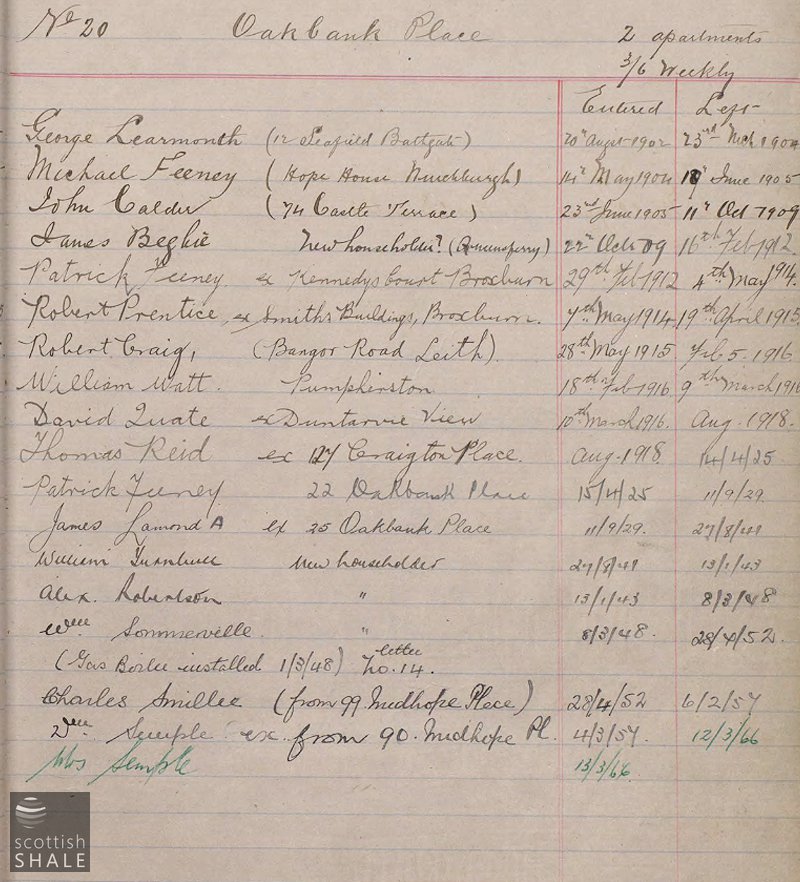 No 20 Oakbank Place 2 apartments
3/6 Weekly
Entered Left
George Learmonth (12 Seafield Bathgate) 20th August 1902 23rd Mch 1904
Michael Feeney (Hope House Winchburgh) 14th May 1904 19th June 1905
John Calder (74 Castle Terrace) 23rd June 1905 11th Oct 1909
James Beghie New householder? (Queensferry) 22nd Octr 09 16th Feb 1912.
Patrick Feeney. ex Kennedys Court Broxburn 29th Feb 1912 4th May 1914.
Robert Prentice, ex Smith's Buildings, Broxburn. 7th May 1914 19th April 1915.
Robert Craig, (Bangor Road Leith). 28th May 1915 Feb 5. 1916.
William Watt. Pumpherston 18th Feb 1916 9th March 1916
David Quate ex Duntarvie View 10th March 1916. Aug. 1918.
Thomas Reid ex 127 Craigton Place. Aug. 1918. 14/4/25
Patrick Feeney 22 Oakbank Place 15/4/25 11/9/29.
James Lamond A ex 25 Oakbank Place 11/9/29. 27/8/41
William Turnbull New householder 27/8/41 13/1/43
Alex. Robertson " 13/1/43 8/3/48
Wm Sommerville. " 8/3/48. 28/4/52.
(Gas Boiler installed 1/3/48) letter No. 14.
Charles Smillee (from 99 Midhope Place) 28/4/52 6/2/57
Wm. Semple ex from 90 Midhope Pl. 4/3/57. 12/3/66
Mrs Semple 13/3/66.
scottish
SHALE